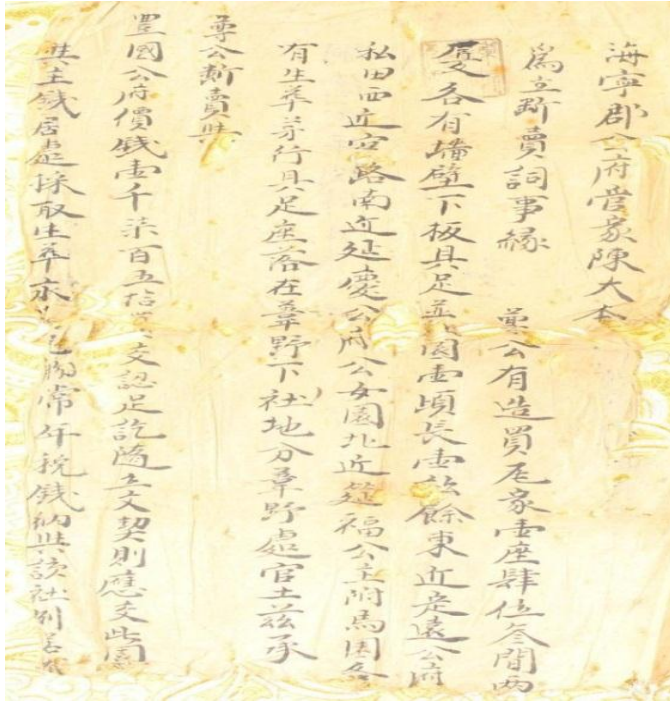 海寧郡公府管家陳大本
爲立斷賣詞事緣　尊公有造買瓦家壹座肆位叁間兩
廈各有墻壁下板具足並園壹頃長壹高餘東近定遠公府
私田西近官路南近延慶公府公女園北近筵福公主附馬園各
有生萃芽行具足座落在葦野下社地分葦野處官土茲承
尊公斷賣與
豐國公府價錢壹千柒百五拾貫交認足訖隨立文契則應交此園
與主錢居處採取生萃永爲己物常年稅錢納與該社別若